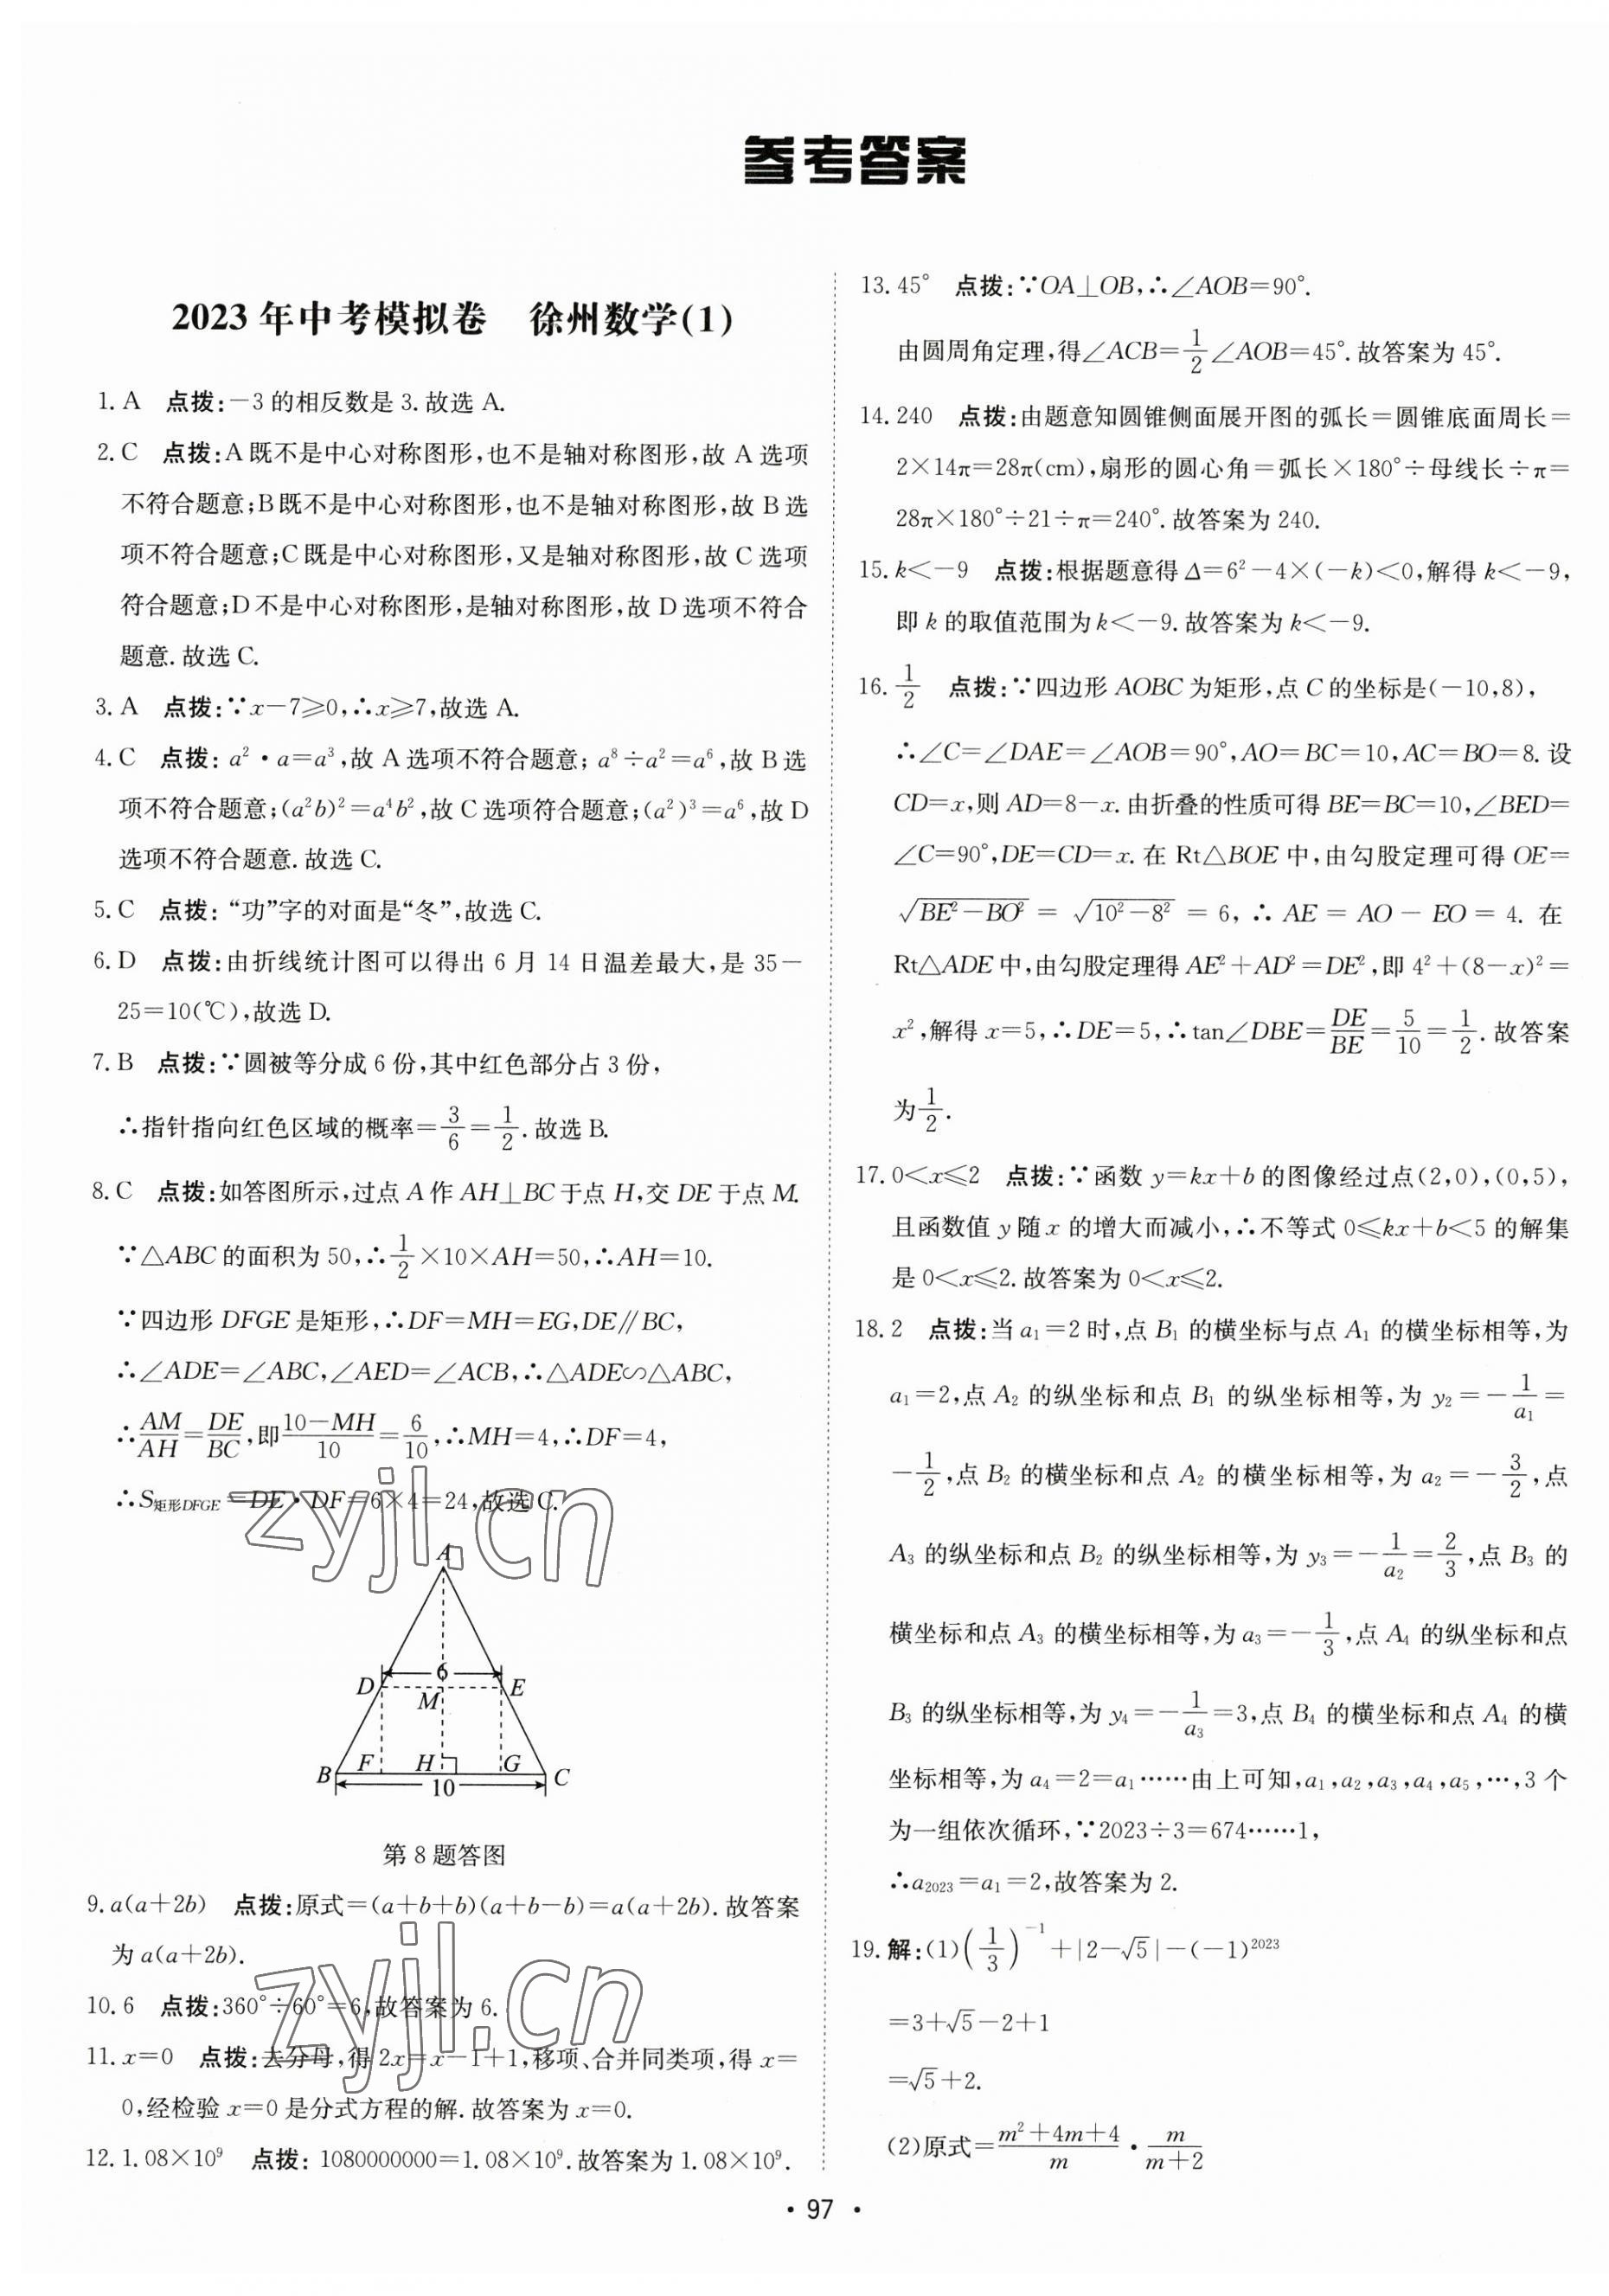 参考答案
2023 年中考模拟卷 徐州数学(1)
1. A 点拨:−3 的相反数是 3. 故选 A.
2. C 点拨:A 既不是中心对称图形,也不是轴对称图形,故 A 选项
不符合题意;B 既不是中心对称图形,也不是轴对称图形,故 B 选
项不符合题意;C 既是中心对称图形,又是轴对称图形,故 C 选项
符合题意;D 不是中心对称图形,是轴对称图形,故 D 选项不符合
题意. 故选 C.
3. A 点拨:∵x−7⩾0,∴x⩾7,故选 A.
4. C 点拨: a²·a=a³,故 A 选项不符合题意; a⁸÷a²=a⁶,故 B 选
项不符合题意;(a²b)²=a⁴b²,故 C 选项符合题意;(a²)³=a⁶,故 D
选项不符合题意. 故选 C.
5. C 点拨: “功”字的对面是“冬”,故选 C.
6. D 点拨:由折线统计图可以得出 6 月 14 日温差最大,是 35−
25=10(℃),故选 D.
7. B 点拨:∵圆被等分成 6 份,其中红色部分占 3 份,
∴指针指向红色区域的概率=3/6=1/2. 故选 B.
8. C 点拨:如答图所示,过点 A 作 AH⊥BC 于点 H,交 DE 于点 M.
∵△ABC 的面积为 50,∴1/2×10×AH=50,∴AH=10.
∵四边形 DFGE 是矩形,∴DF=MH=EG,DE∥BC,
∴∠ADE=∠ABC,∠AED=∠ACB,∴△ADE∽△ABC,
∴AM/AH=DE/BC,即(10−MH)/10=6/10,∴MH=4,∴DF=4,
∴S矩形DFGE=DE·DF=6×4=24,故选 C.
zyjl.cn
A
D 6 E
M
B F H G C
10
第 8 题答图
9. a(a+2b) 点拨:原式=(a+b+b)(a+b−b)=a(a+2b). 故答案
为 a(a+2b).
10. 6 点拨:360°÷60°=6,故答案为 6.
zyjl.cn
11. x=0 点拨:去分母,得 2x=x−1+1,移项、合并同类项,得 x=
0,经检验 x=0 是分式方程的解. 故答案为 x=0.
12. 1.08×10⁹ 点拨: 1080000000=1.08×10⁹. 故答案为 1.08×10⁹.
13. 45° 点拨:∵OA⊥OB,∴∠AOB=90°.
由圆周角定理,得∠ACB=1/2∠AOB=45°. 故答案为 45°.
14. 240 点拨:由题意知圆锥侧面展开图的弧长=圆锥底面周长=
2×14π=28π(cm),扇形的圆心角=弧长×180°÷母线长÷π=
28π×180°÷21÷π=240°. 故答案为 240.
15. k<−9 点拨:根据题意得 Δ=6²−4×(−k)<0,解得 k<−9,
即 k 的取值范围为 k<−9. 故答案为 k<−9.
16. 1/2 点拨:∵四边形 AOBC 为矩形,点 C 的坐标是(−10,8),
∴∠C=∠DAE=∠AOB=90°,AO=BC=10,AC=BO=8. 设
CD=x,则 AD=8−x. 由折叠的性质可得 BE=BC=10,∠BED=
∠C=90°,DE=CD=x. 在 Rt△BOE 中,由勾股定理可得 OE=
√(BE²−BO²)=√(10²−8²)=6,∴AE=AO−EO=4. 在
Rt△ADE 中,由勾股定理得 AE²+AD²=DE²,即 4²+(8−x)²=
x²,解得 x=5,∴DE=5,∴tan∠DBE=DE/BE=5/10=1/2. 故答案
为1/2.
17. 0<x⩽2 点拨:∵函数 y=kx+b 的图像经过点(2,0),(0,5),
且函数值 y 随 x 的增大而减小,∴不等式 0⩽kx+b<5 的解集
是 0<x⩽2. 故答案为 0<x⩽2.
18. 2 点拨:当 a₁=2 时,点 B₁ 的横坐标与点 A₁ 的横坐标相等,为
a₁=2,点 A₂ 的纵坐标和点 B₁ 的纵坐标相等,为 y₂=−1/a₁=
−1/2,点 B₂ 的横坐标和点 A₂ 的横坐标相等,为 a₂=−3/2,点
A₃ 的纵坐标和点 B₂ 的纵坐标相等,为 y₃=−1/a₂=2/3,点 B₃ 的
横坐标和点 A₃ 的横坐标相等,为 a₃=−1/3,点 A₄ 的纵坐标和点
B₃ 的纵坐标相等,为 y₄=−1/a₃=3,点 B₄ 的横坐标和点 A₄ 的横
坐标相等,为 a₄=2=a₁……由上可知,a₁,a₂,a₃,a₄,a₅,…,3 个
为一组依次循环,∵2023÷3=674……1,
∴a₂₀₂₃=a₁=2,故答案为 2.
19. 解:(1)(1/3)⁻¹+|2−√5|−(−1)²⁰²³
=3+√5−2+1
=√5+2.
(2)原式=(m²+4m+4)/m·m/(m+2)
· 97 ·